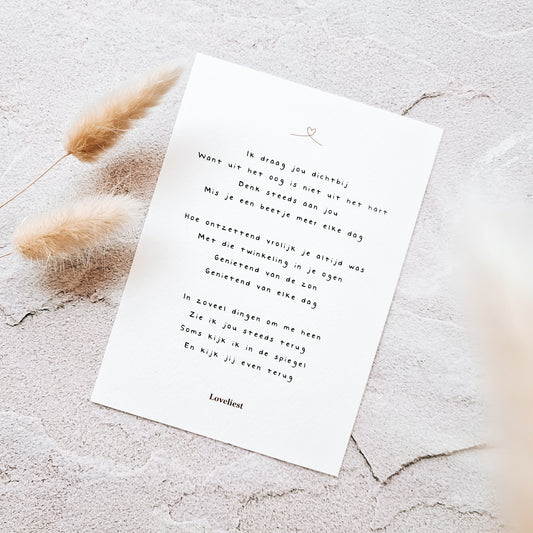 Ik draag jou dichtbij
Want uit het oog is niet uit het hart
Denk steeds aan jou
Mis je een beetje meer elke dag
Hoe ontzettend vrolijk je altijd was
Met die twinkeling in je ogen
Genietend van de zon
Genietend van elke dag
In zoveel dingen om me heen
Zie ik jou steeds terug
Soms kijk ik in de spiegel
En kijk jij even terug
Loveliest